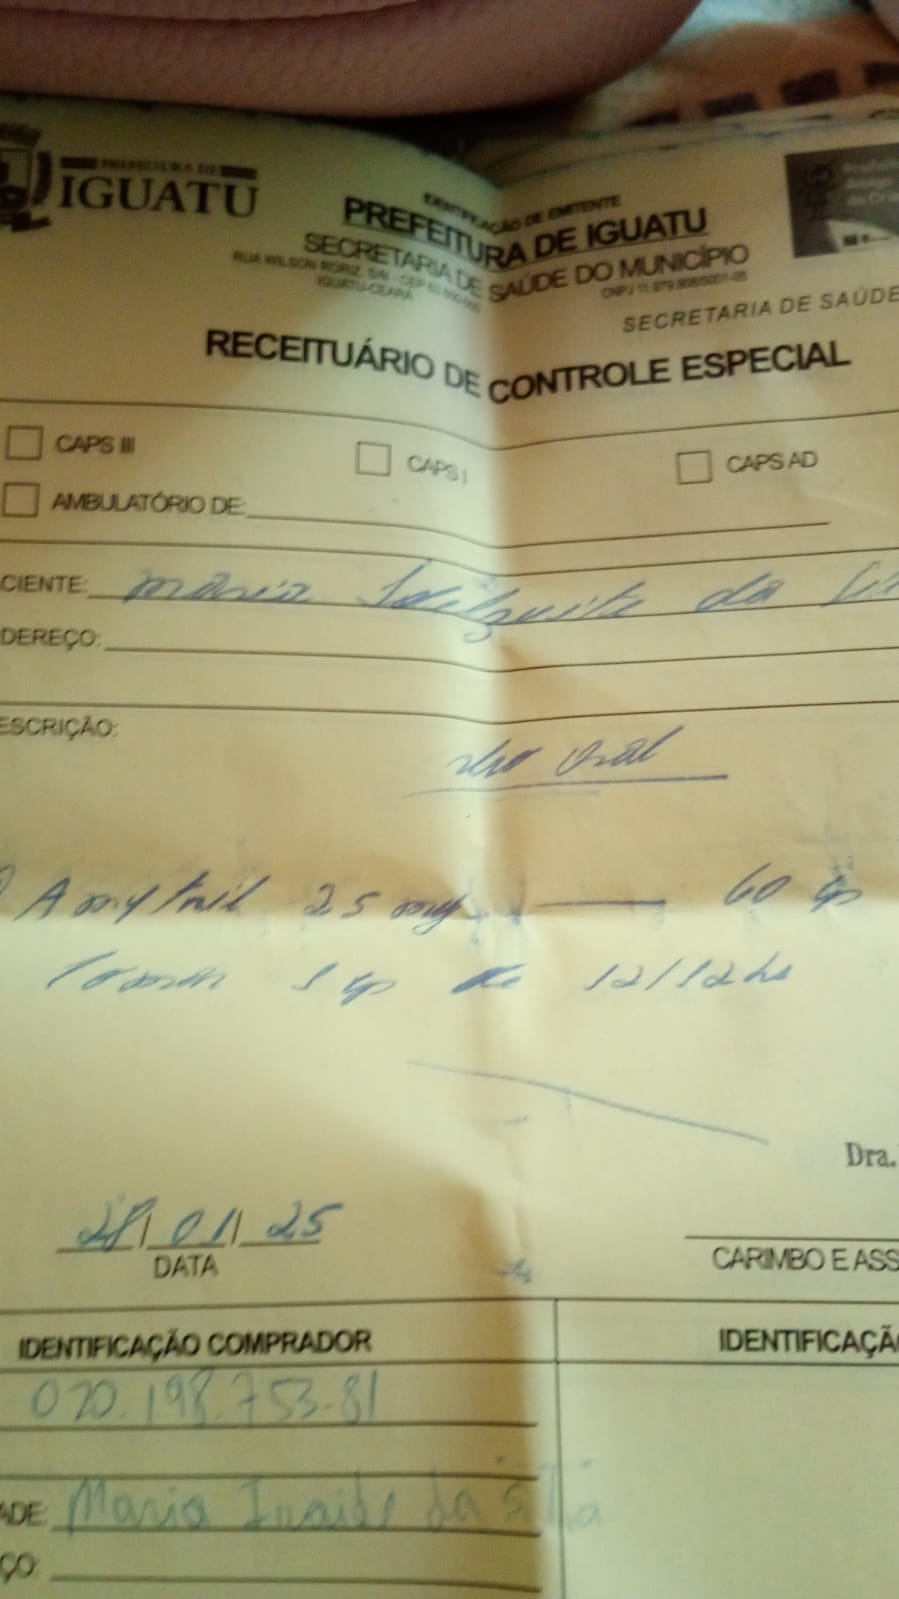 PREFEITURA DE
IGUATU
IDENTIFICAÇÃO DE EMITENTE
PREFEITURA DE IGUATU
SECRETARIA DE SAÚDE DO MUNICÍPIO
RUA WILSON RORIZ, S/N - CEP
IGUATU-CEARÁ
SECRETARIA DE SAÚDE
RECEITUÁRIO DE CONTROLE ESPECIAL
CAPS III CAPS I CAPS AD
AMBULATÓRIO DE:
CIENTE: Maria da
DEREÇO:
ESCRIÇÃO:
uso oral
Amytril 25 mg — 60 cp
Tomar 1 cp de 12/12hs
Dra.
28/01/25
DATA
CARIMBO E ASS
IDENTIFICAÇÃO COMPRADOR
IDENTIFICAÇÃ
020.198.753-81
ADE: Maria Iraide da Silva
ÇO: